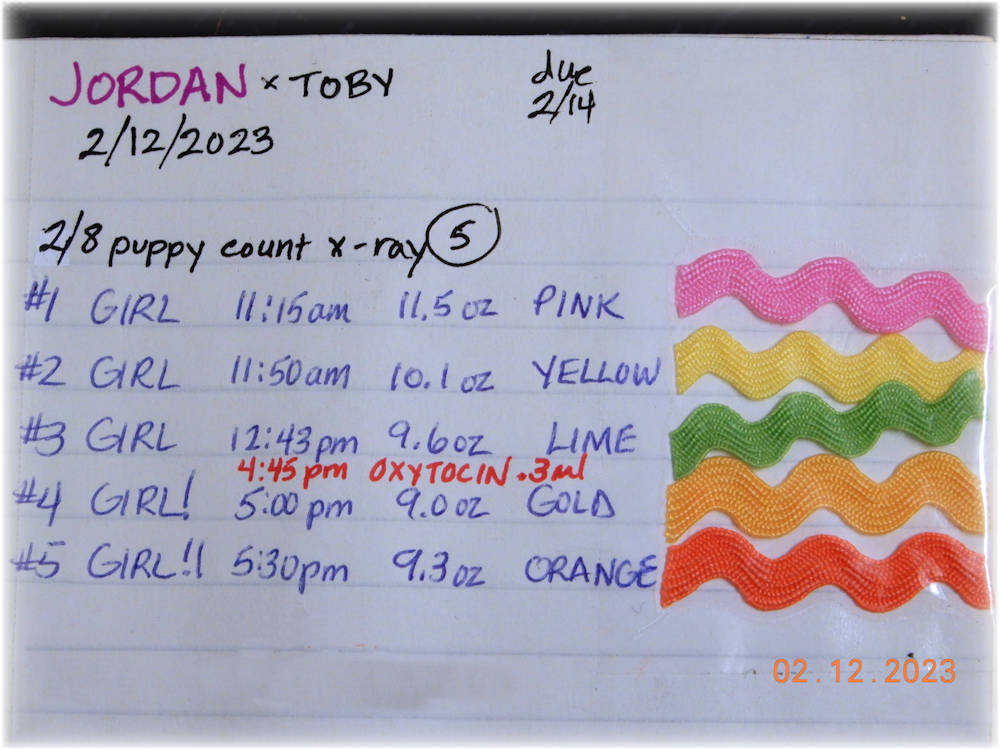 JORDAN x TOBY due
2/12/2023 2/14
2/8 puppy count x-ray 5
#1 GIRL 11:15am 11.5 oz PINK
#2 GIRL 11:50am 10.1 oz YELLOW
#3 GIRL 12:43pm 9.6oz LIME
4:45 pm OXYTOCIN .3ml
#4 GIRL! 5:00 pm 9.0 oz GOLD
#5 GIRL!! 5:30pm 9.3 oz ORANGE
02.12.2023